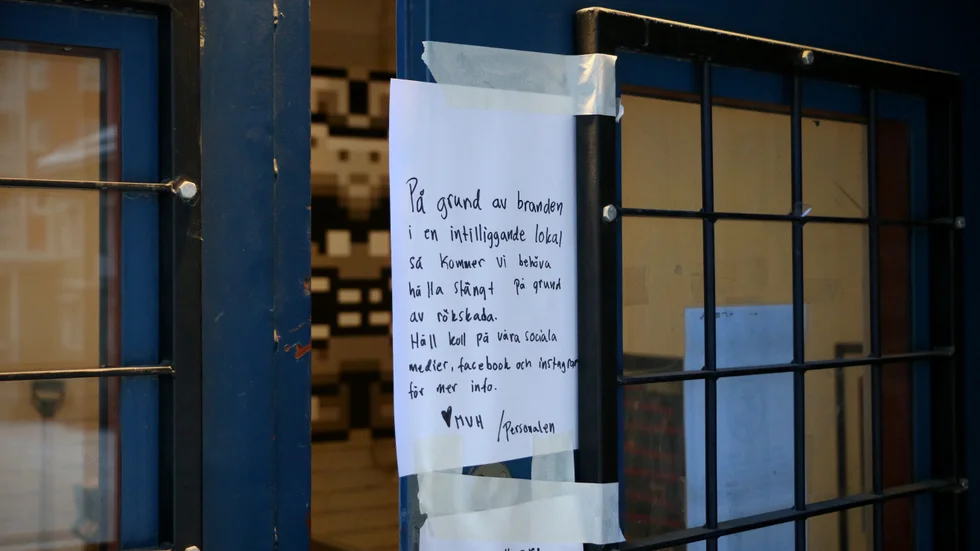 På grund av branden
i en intilliggande lokal
så kommer vi behöva
hålla stängt på grund
av rökskada.
Håll koll på våra sociala
medier, facebook och instagram
för mer info.
♥MVH /Personalen